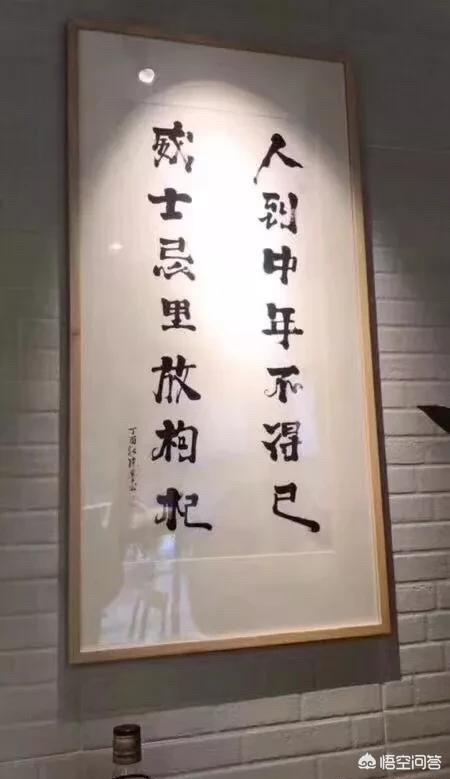 人到中年不得已
威士忌里放枸杞
丁酉
悟空问答